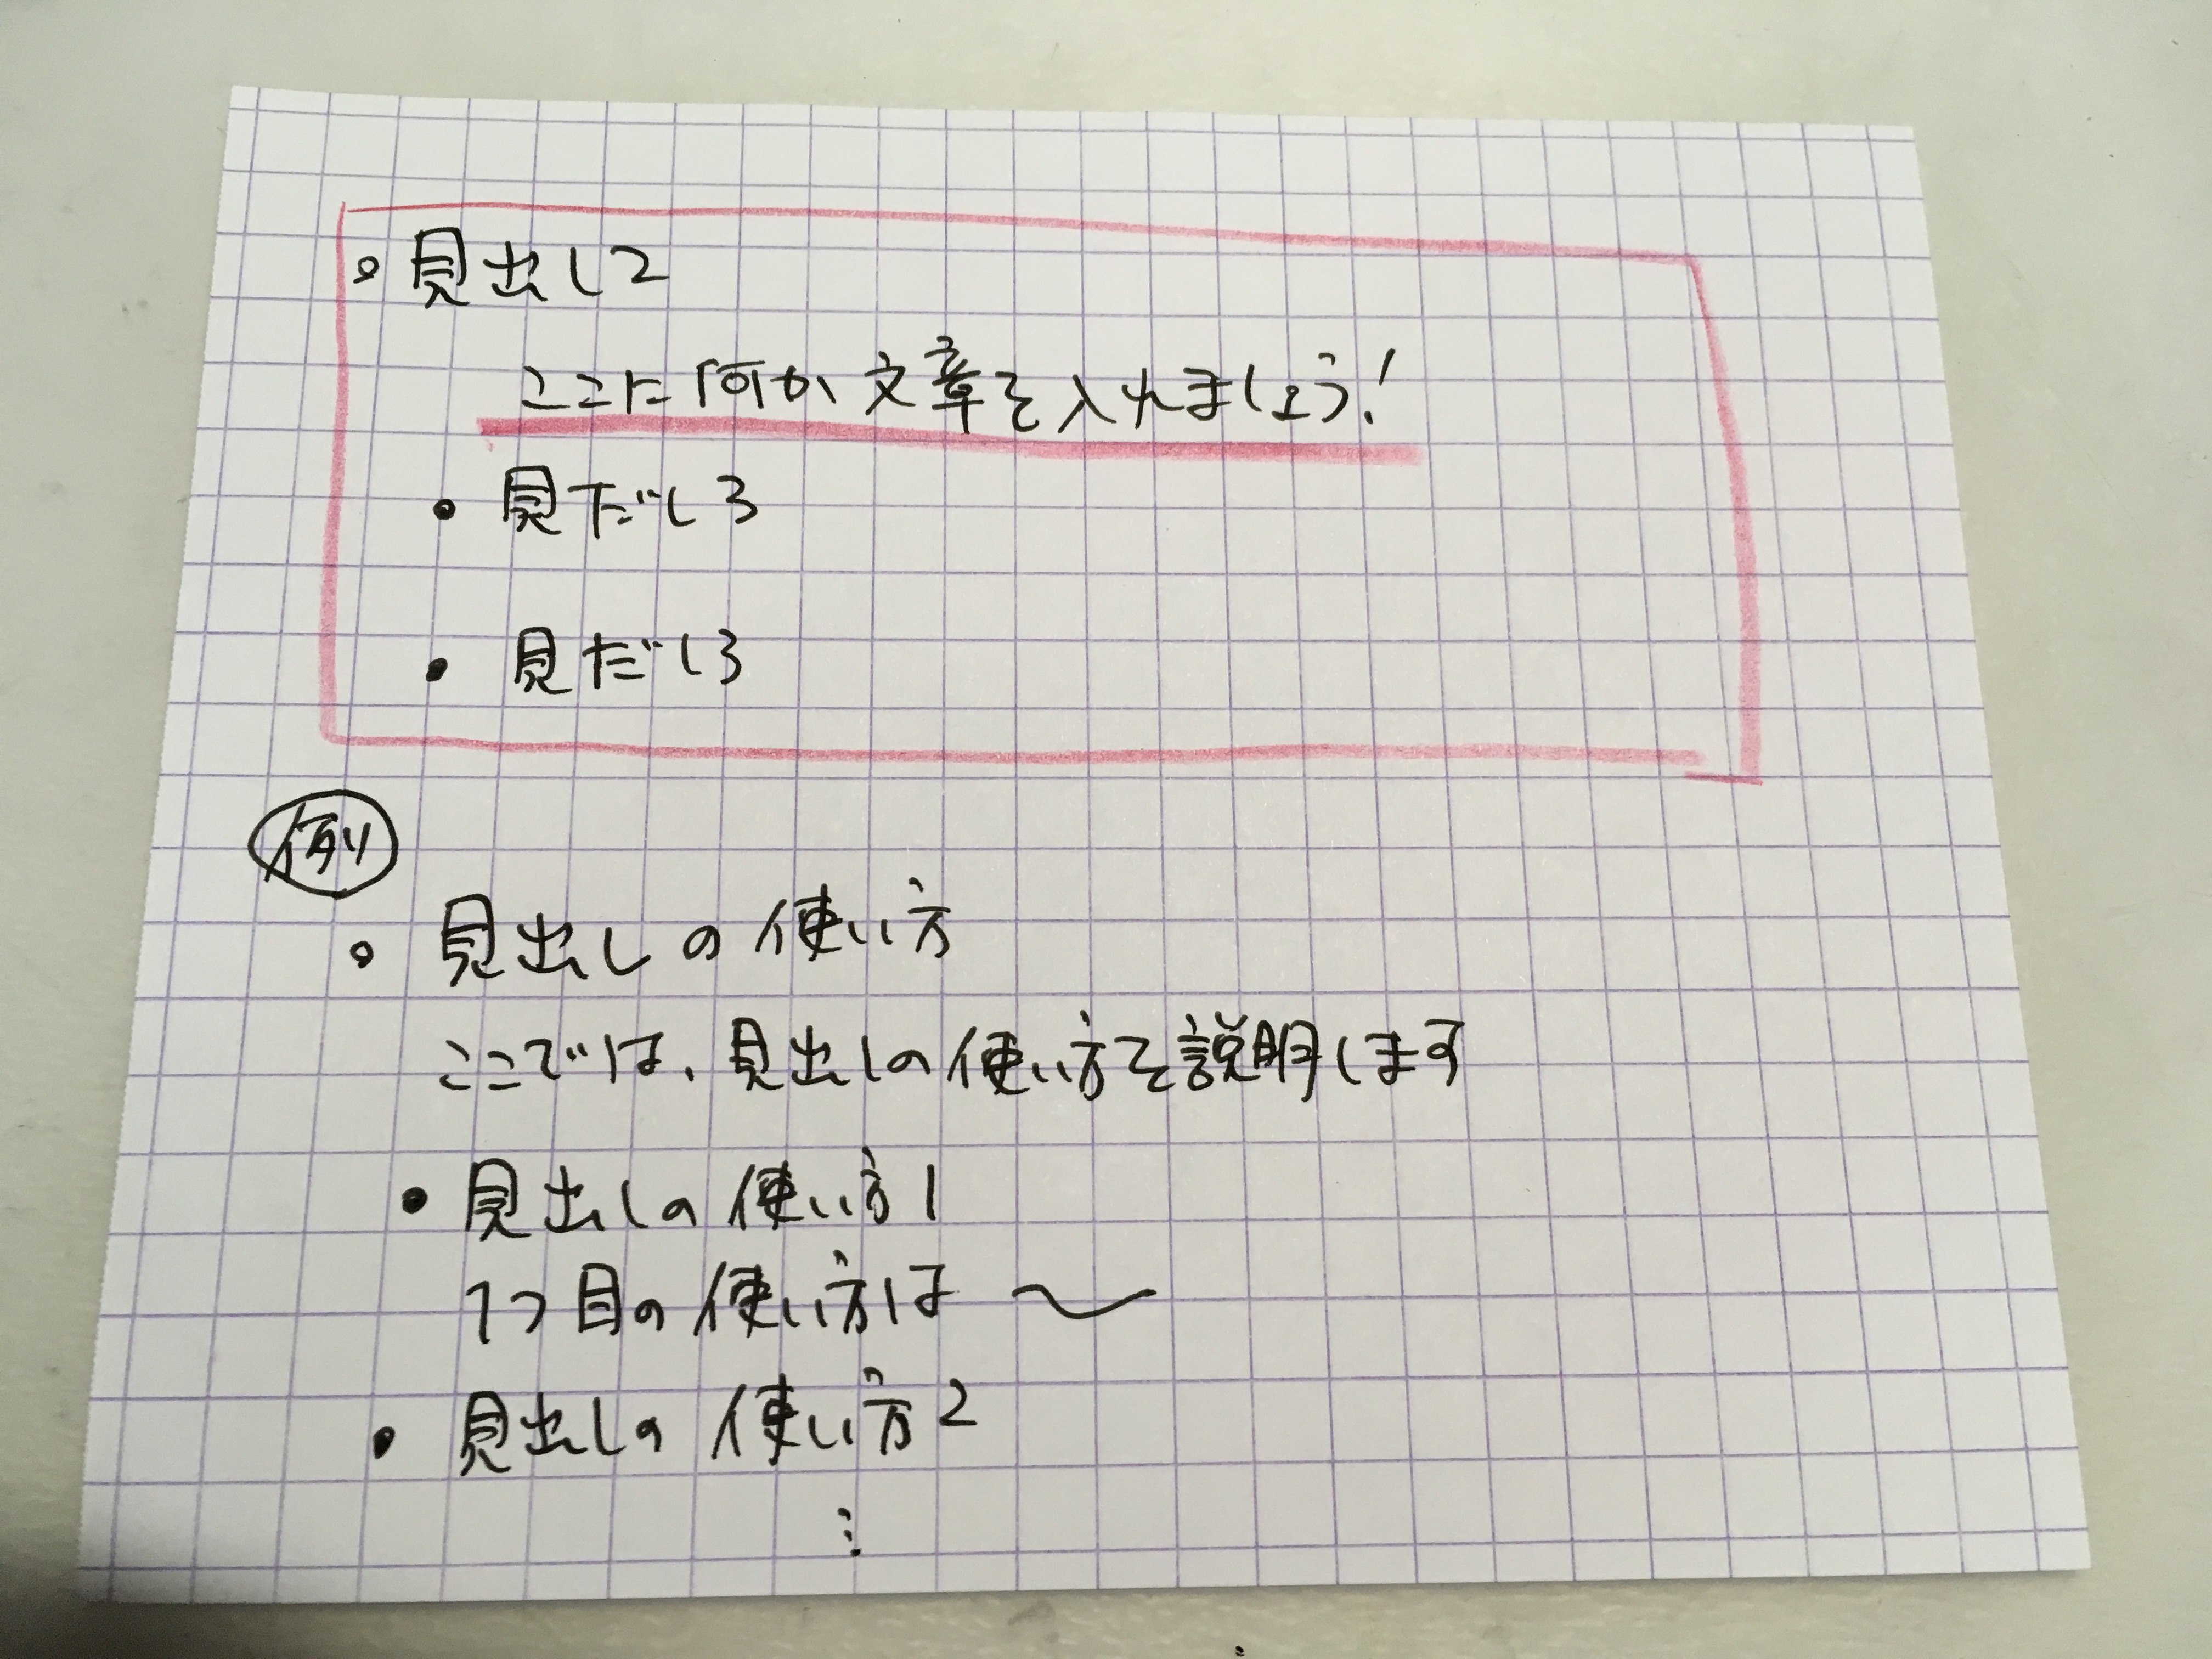 。見出し2
ここに何か文章を入れましょう!
・見だし3
・見だし3
例
。見出しの使い方
ここでは、見出しの使い方を説明します
・見出しの使い方1
1つ目の使い方は〜
・見出しの使い方2
⋮